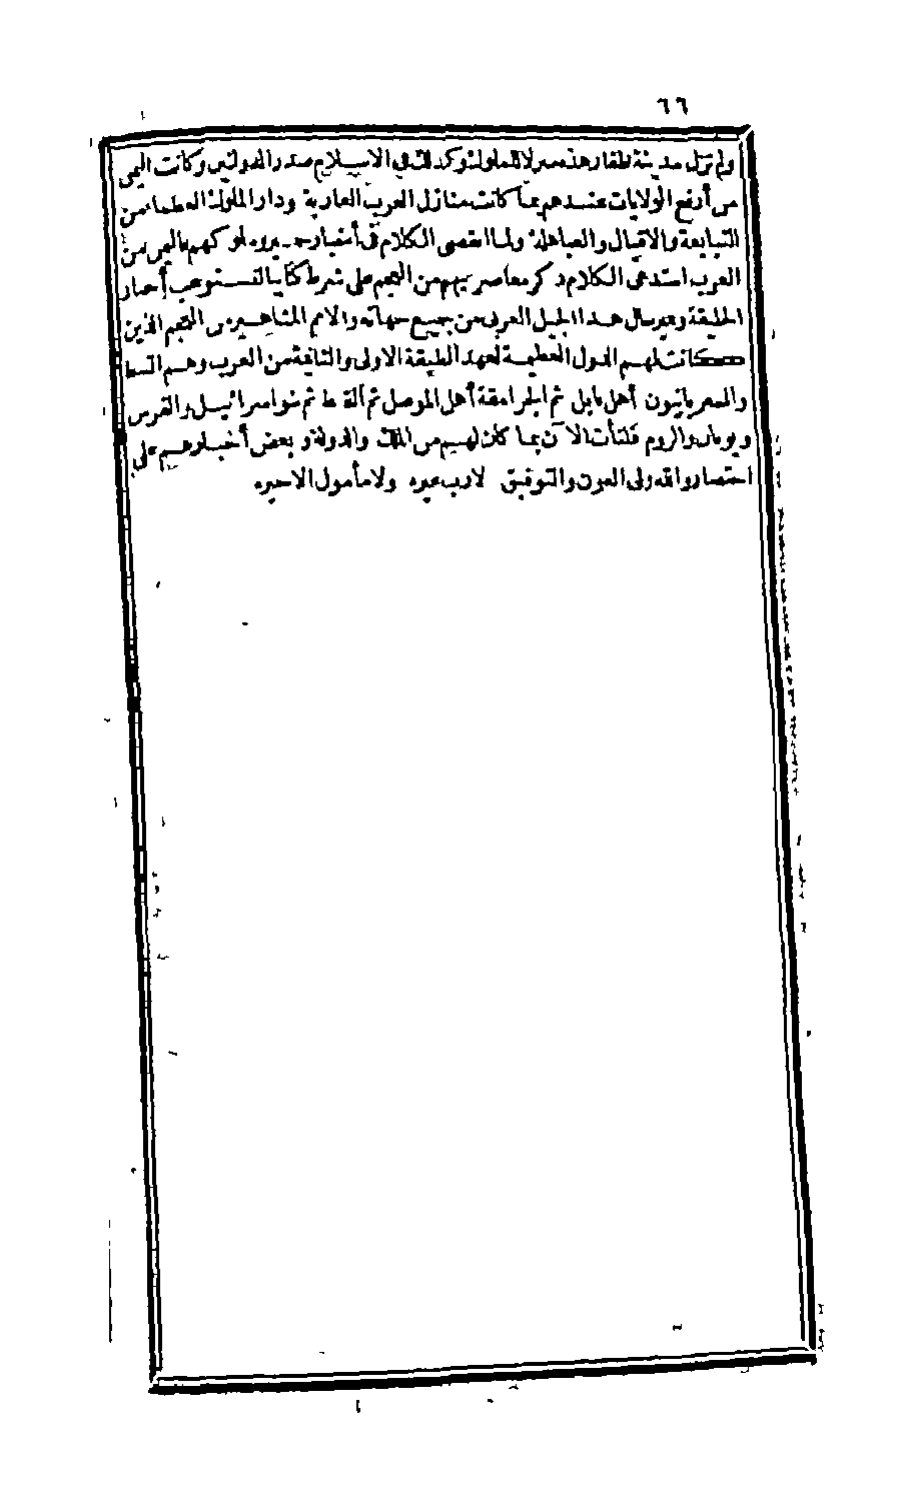 ٦٦
ولم تزل مدينة ظفار هذه منزلا للملوك وكذلك في الاسلام صدر الدولتين وكانت اليمن
من أرفع الولايات عندهم بما كانت منازل العرب العاربة ودار الملوك العظماء من
التبابعة والاقيال والعباهلة ولما انقضى الكلام في أخبار حمير وملوكهم باليمن من
العرب استدعى الكلام ذكر معاصريهم من العجم على شرط كتابنا لنستوعب أخبار
الخليقة ونميز حال هذا الجيل العربي من جميع جهاته والامم المشاهير من العجم الذين
كانت لهم الدول العظيمة لعهد الطبقة الاولى والثانية من العرب وهم النبط
والسريانيون أهل بابل ثم الجرامقة أهل الموصل ثم القبط ثم بنو اسرائيل والفرس
ويونان والروم فلنأت الآن بما كان لهم من الملك والدولة وبعض أخبارهم على
اختصار والله ولي العون والتوفيق لا رب غيره ولا مأمول الا خيره